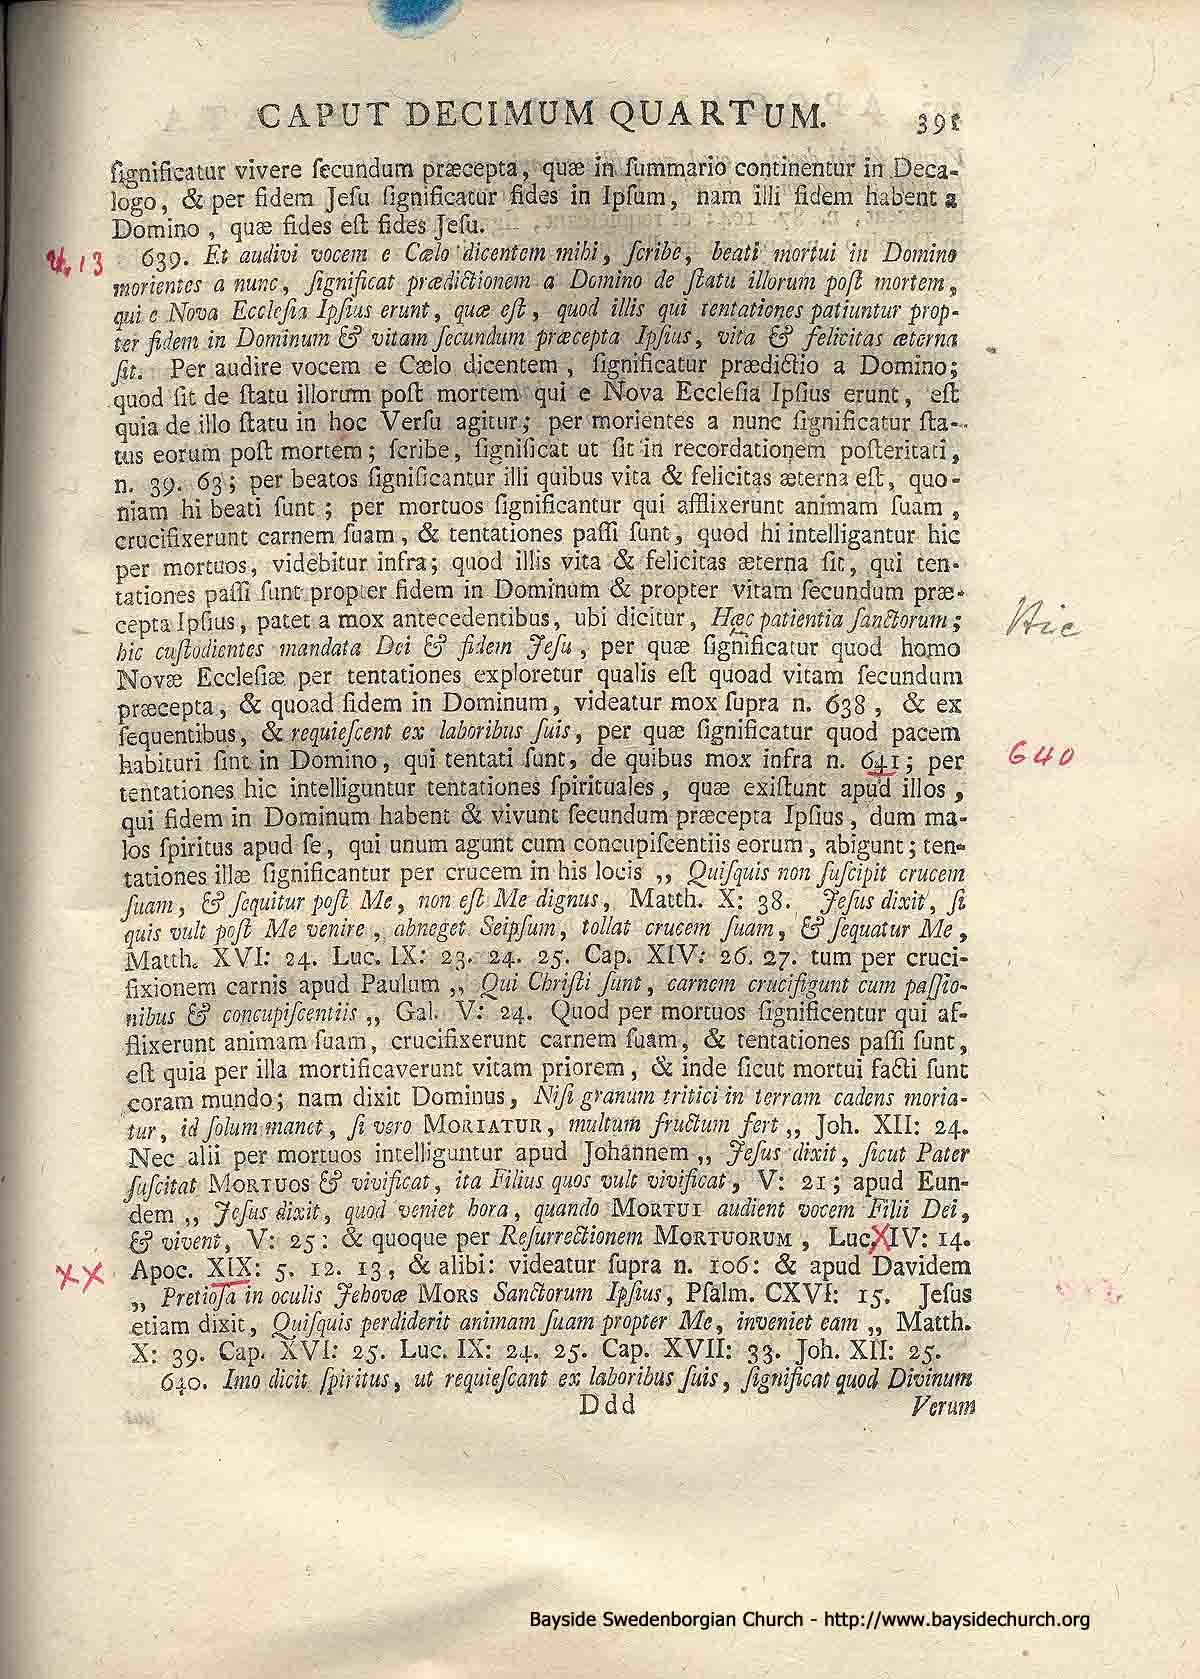 CAPUT DECIMUM QUARTUM. 391
ſignificatur vivere ſecundum præcepta, quæ in ſummario continentur in Deca-
logo, & per fidem Jeſu ſignificatur fides in Ipſum, nam illi fidem habent a
Domino, quæ fides eſt fides Jeſu.
V. 13
639. Et audivi vocem e Cælo dicentem mihi, ſcribe, beati mortui in Domino
morientes a nunc, ſignificat prædictionem a Domino de ſtatu illorum poſt mortem,
qui e Nova Eccleſia Ipſius erunt, quæ eſt, quod illis qui tentationes patiuntur prop-
ter fidem in Dominum & vitam ſecundum præcepta Ipſius, vita & felicitas æterna
ſit. Per audire vocem e Cælo dicentem, ſignificatur prædictio a Domino;
quod ſit de ſtatu illorum poſt mortem qui e Nova Eccleſia Ipſius erunt, eſt
quia de illo ſtatu in hoc Verſu agitur; per morientes a nunc ſignificatur ſta-
tus eorum poſt mortem; ſcribe, ſignificat ut ſit in recordationem poſteritati,
n. 39. 63; per beatos ſignificantur illi quibus vita & felicitas æterna eſt, quo-
niam hi beati ſunt; per mortuos ſignificantur qui afflixerunt animam ſuam,
crucifixerunt carnem ſuam, & tentationes paſſi ſunt, quod hi intelligantur hic
per mortuos, videbitur infra; quod illis vita & felicitas æterna ſit, qui ten-
tationes paſſi ſunt propter fidem in Dominum & propter vitam ſecundum præ-
cepta Ipſius, patet a mox antecedentibus, ubi dicitur, Hæc patientia ſanctorum;
Hic
hic cuſtodientes mandata Dei & fidem Jeſu, per quæ ſignificatur quod homo
Novæ Eccleſiæ per tentationes exploretur qualis eſt quoad vitam ſecundum
præcepta, & quoad fidem in Dominum, videatur mox ſupra n. 638, & ex
ſequentibus, & requieſcent ex laboribus ſuis, per quæ ſignificatur quod pacem
habituri ſint in Domino, qui tentati ſunt, de quibus mox infra n. 641; per
640
tentationes hic intelliguntur tentationes ſpirituales, quæ exiſtunt apud illos,
qui fidem in Dominum habent & vivunt ſecundum præcepta Ipſius, dum ma-
los ſpiritus apud ſe, qui unum agunt cum concupiſcentiis eorum, abigunt; ten-
tationes illæ ſignificantur per crucem in his locis ,, Quiſquis non ſuſcipit crucem
ſuam, & ſequitur poſt Me, non eſt Me dignus, Matth. X: 38. Jeſus dixit, ſi
quis vult poſt Me venire, abneget Seipſum, tollat crucem ſuam, & ſequatur Me,
Matth. XVI: 24. Luc. IX: 23. 24. 25. Cap. XIV: 26. 27. tum per cruci-
fixionem carnis apud Paulum ,, Qui Chriſti ſunt, carnem crucifigunt cum paſſio-
nibus & concupiſcentiis ,, Gal. V: 24. Quod per mortuos ſignificentur qui af-
flixerunt animam ſuam, crucifixerunt carnem ſuam, & tentationes paſſi ſunt,
eſt quia per illa mortificaverunt vitam priorem, & inde ſicut mortui facti ſunt
coram mundo; nam dixit Dominus, Niſi granum tritici in terram cadens moria-
tur, id ſolum manet, ſi vero MORIATUR, multum fructum fert ,, Joh. XII: 24.
Nec alii per mortuos intelliguntur apud Johannem ,, Jeſus dixit, ſicut Pater
ſuſcitat MORTUOS & vivificat, ita Filius quos vult vivificat, V: 21; apud Eun-
dem ,, Jeſus dixit, quod veniet hora, quando MORTUI audient vocem Filii Dei,
& vivent, V: 25: & quoque per Reſurrectionem MORTUORUM, Luc. XIV: 14.
XX
Apoc. XIX: 5. 12. 13, & alibi: videatur ſupra n. 106: & apud Davidem
,, Pretioſa in oculis Jehovæ MORS Sanctorum Ipſius, Pſalm. CXVI: 15. Jeſus
etiam dixit, Quiſquis perdiderit animam ſuam propter Me, inveniet eam ,, Matth.
X: 39. Cap. XVI: 25. Luc. IX: 24. 25. Cap. XVII: 33. Joh. XII: 25.
640. Imo dicit ſpiritus, ut requieſcant ex laboribus ſuis, ſignificat quod Divinum
Ddd Verum
Bayside Swedenborgian Church - http://www.baysidechurch.org